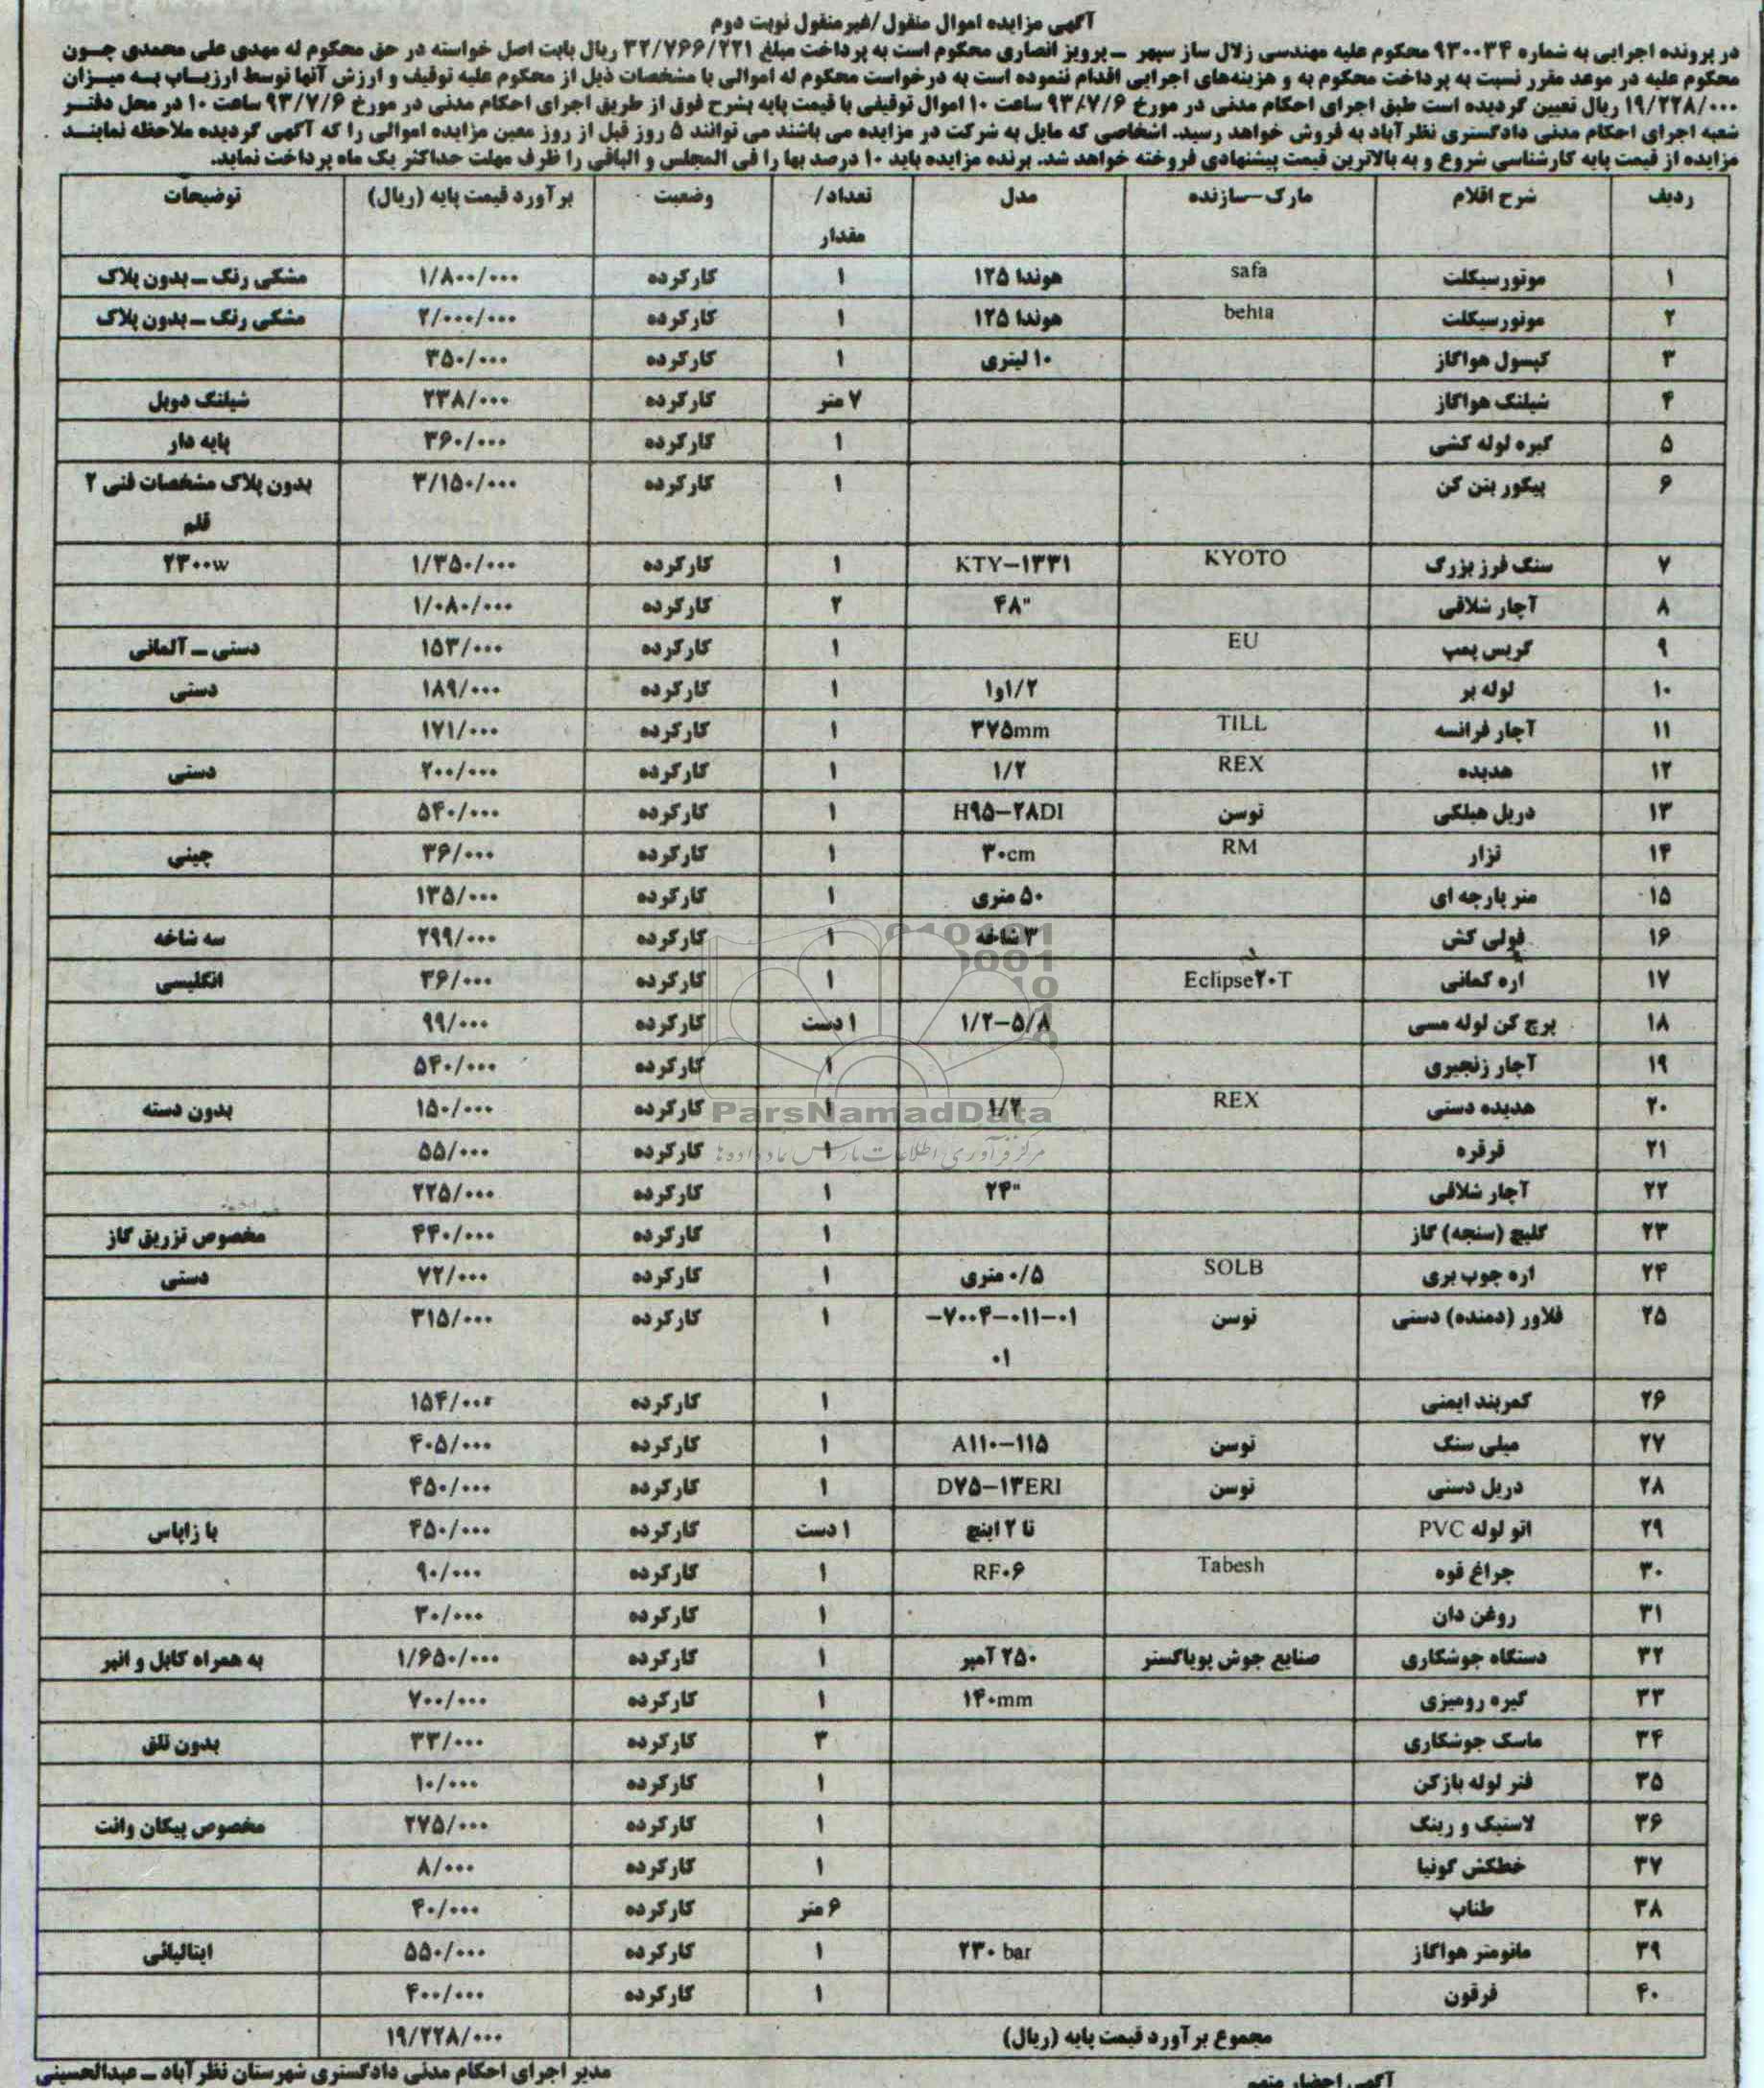 آگهی مزایده اموال منقول/غیرمنقول نوبت دوم
در پرونده اجرایی به شماره ۹۳۰۰۳۴ محکوم علیه مهندسی زلال ساز سپهر – پرویز انصاری محکوم است به پرداخت مبلغ ۳۲/۷۶۶/۲۲۱ ریال بابت اصل خواسته در حق محکوم له مهدی علی محمدی چون
محکوم علیه در موعد مقرر نسبت به پرداخت محکوم به و هزینه‌های اجرایی اقدام ننموده است به درخواست محکوم له اموالی با مشخصات ذیل از محکوم علیه توقیف و ارزش آنها توسط ارزیاب به میزان
۱۹/۲۲۸/۰۰۰ ریال تعیین گردیده است طبق اجرای احکام مدنی در مورخ ۹۳/۷/۶ ساعت ۱۰ اموال توقیفی با قیمت پایه بشرح فوق از طریق اجرای احکام مدنی در مورخ ۹۳/۷/۶ ساعت ۱۰ در محل دفتر
شعبه اجرای احکام مدنی دادگستری نظرآباد به فروش خواهد رسید. اشخاصی که مایل به شرکت در مزایده می باشند می توانند ۵ روز قبل از روز معین مزایده اموالی را که آگهی گردیده ملاحظه نمایند
مزایده از قیمت پایه کارشناسی شروع و به بالاترین قیمت پیشنهادی فروخته خواهد شد. برنده مزایده باید ۱۰ درصد بها را فی المجلس و الباقی را ظرف مهلت حداکثر یک ماه پرداخت نماید.
ردیف شرح اقلام مارک–سازنده مدل تعداد/ وضعیت برآورد قیمت پایه (ریال) توضیحات
مقدار
۱ موتورسیکلت safa هوندا ۱۲۵ ۱ کارکرده ۱/۸۰۰/۰۰۰ مشکی رنگ – بدون پلاک
۲ موتورسیکلت behta هوندا ۱۲۵ ۱ کارکرده ۲/۰۰۰/۰۰۰ مشکی رنگ – بدون پلاک
۳ کپسول هواگاز ۱۰ لیتری ۱ کارکرده ۳۵۰/۰۰۰
۴ شیلنگ هواگاز ۷ متر کارکرده ۲۳۸/۰۰۰ شیلنگ دوبل
۵ گیره لوله کشی ۱ کارکرده ۳۶۰/۰۰۰ پایه دار
۶ پیکور بتن کن ۱ کارکرده ۳/۱۵۰/۰۰۰ بدون پلاک مشخصات فنی ۲
قلم
۷ سنگ فرز بزرگ KYOTO KTY–۱۳۳۱ ۱ کارکرده ۱/۳۵۰/۰۰۰ ۲۳۰۰w
۸ آچار شلاقی ۴۸" ۲ کارکرده ۱/۰۸۰/۰۰۰
۹ گریس پمپ EU ۱ کارکرده ۱۵۳/۰۰۰ دستی – آلمانی
۱۰ لوله بر ۱/۲و۱ ۱ کارکرده ۱۸۹/۰۰۰ دستی
۱۱ آچار فرانسه TILL ۳۷۵mm ۱ کارکرده ۱۷۱/۰۰۰
۱۲ هدیده REX ۱/۲ ۱ کارکرده ۲۰۰/۰۰۰ دستی
۱۳ دریل هیلکی توسن H۹۵–۲۸DI ۱ کارکرده ۵۴۰/۰۰۰
۱۴ تزار RM ۳۰cm ۱ کارکرده ۳۶/۰۰۰ چینی
۱۵ متر پارچه ای ۵۰ متری ۱ کارکرده ۱۳۵/۰۰۰
۱۶ فولی کش ۳ شاخه ۱ کارکرده ۲۹۹/۰۰۰ سه شاخه
۱۷ اره کمانی Eclipse۲۰T ۱ کارکرده ۳۶/۰۰۰ انگلیسی
۱۸ پرچ کن لوله مسی ۱/۲–۵/۸ ۱ دست کارکرده ۹۹/۰۰۰
۱۹ آچار زنجیری ۱ کارکرده ۵۴۰/۰۰۰
۲۰ هدیده دستی REX ۱/۲ ۱ کارکرده ۱۵۰/۰۰۰ بدون دسته
ParsNamadData
۲۱ قرقره ۱ کارکرده ۵۵/۰۰۰
مرکز فرآوری اطلاعات پارس نماد داده‌ها
۲۲ آچار شلاقی ۲۴" ۱ کارکرده ۲۲۵/۰۰۰
۲۳ گلیج (سنجه) گاز ۱ کارکرده ۴۴۰/۰۰۰ مخصوص تزریق گاز
۲۴ اره چوب بری SOLB ۰/۵ متری ۱ کارکرده ۷۲/۰۰۰ دستی
۲۵ فلاور (دمنده) دستی توسن ۷۰۰۴–۰۱۱–۰۱– ۱ کارکرده ۳۱۵/۰۰۰
۰۱
۲۶ کمربند ایمنی ۱ کارکرده ۱۵۴/۰۰۰
۲۷ مینی سنگ توسن A۱۱۰–۱۱۵ ۱ کارکرده ۴۰۵/۰۰۰
۲۸ دریل دستی توسن D۷۵–۱۳ERI ۱ کارکرده ۴۵۰/۰۰۰
۲۹ اتو لوله PVC تا ۲ اینچ ۱ دست کارکرده ۴۵۰/۰۰۰ با زاپاس
۳۰ چراغ قوه Tabesh RF۰۶ ۱ کارکرده ۹۰/۰۰۰
۳۱ روغن دان ۱ کارکرده ۳۰/۰۰۰
۳۲ دستگاه جوشکاری صنایع جوش پویاگستر ۲۵۰ آمپر ۱ کارکرده ۱/۶۵۰/۰۰۰ به همراه کابل و انبر
۳۳ گیره رومیزی ۱۴۰mm ۱ کارکرده ۷۰۰/۰۰۰
۳۴ ماسک جوشکاری ۳ کارکرده ۳۳/۰۰۰ بدون تلق
۳۵ فنر لوله بازکن ۱ کارکرده ۱۰/۰۰۰
۳۶ لاستیک و رینگ ۱ کارکرده ۲۷۵/۰۰۰ مخصوص پیکان وانت
۳۷ خطکش گونیا ۱ کارکرده ۸/۰۰۰
۳۸ طناب ۶ متر کارکرده ۴۰/۰۰۰
۳۹ مانومتر هواگاز ۲۳۰ bar ۱ کارکرده ۵۵۰/۰۰۰ ایتالیائی
۴۰ فرقون ۱ کارکرده ۴۰۰/۰۰۰
مجموع برآورد قیمت پایه (ریال) ۱۹/۲۲۸/۰۰۰
مدیر اجرای احکام مدنی دادگستری شهرستان نظرآباد – عبدالحسینی
آگهی احضار متهم